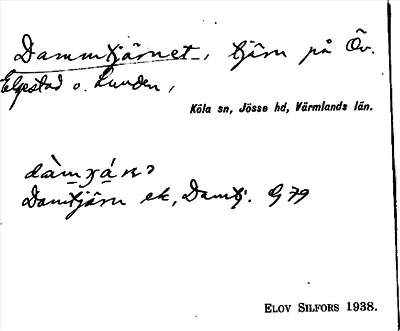 Dammtjärnet, tjärn på Öv.
Elgestad o. Lunden,
Köla sn, Jösse hd, Värmlands län.
Damtjärn ek, Damtj. G 79
ELOV SILFORS 1938.